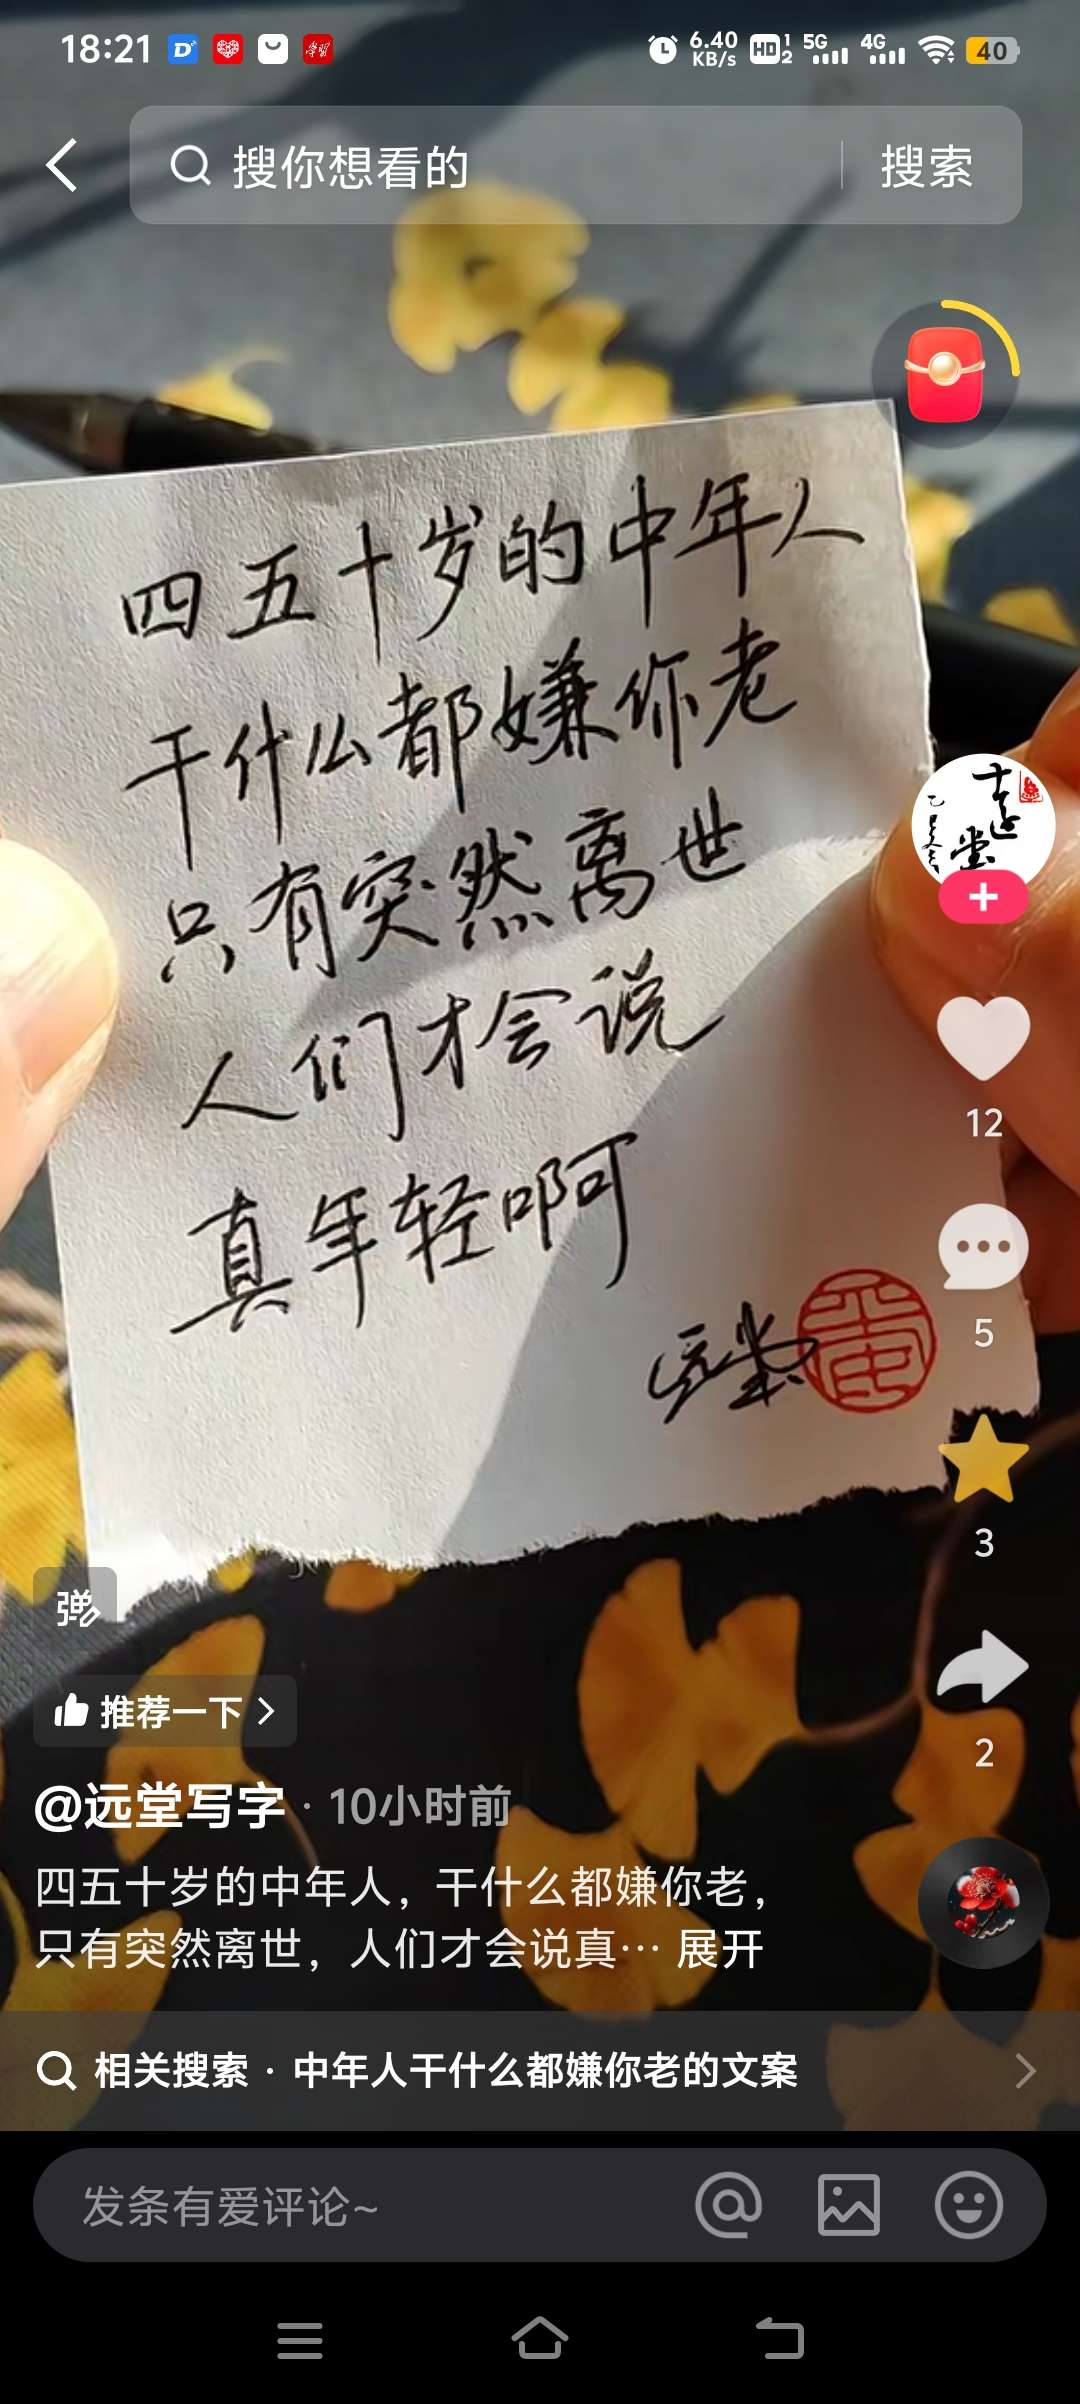 18:21
6.40 KB/s HD 1 2 5G 4G 40
搜你想看的 搜索
四五十岁的中年人
干什么都嫌你老
只有突然离世
人们才会说
真年轻啊
远堂
12
5
3
2
弹
推荐一下
@远堂写字 · 10小时前
四五十岁的中年人，干什么都嫌你老，
只有突然离世，人们才会说真… 展开
相关搜索 · 中年人干什么都嫌你老的文案
发条有爱评论~